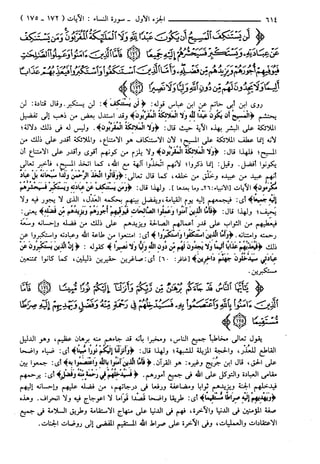 ٦١٤ الجزء الأول - سورة النساء : الآيات ( ١٧٢ - ١٧٥ )
لَّن يَسْتَنكِفَ ٱلْمَسِيحُ أَن يَكُونَ عَبْدًا لِّلَّهِ وَلَا ٱلْمَلَٰٓئِكَةُ ٱلْمُقَرَّبُونَ وَمَن يَسْتَنكِفْ
عَنْ عِبَادَتِهِۦ وَيَسْتَكْبِرْ فَسَيَحْشُرُهُمْ إِلَيْهِ جَمِيعًا ﴿١٧٢﴾ فَأَمَّا ٱلَّذِينَ ءَامَنُوا۟ وَعَمِلُوا۟ ٱلصَّٰلِحَٰتِ
فَيُوَفِّيهِمْ أُجُورَهُمْ وَيَزِيدُهُم مِّن فَضْلِهِۦ وَأَمَّا ٱلَّذِينَ ٱسْتَنكَفُوا۟ وَٱسْتَكْبَرُوا۟ فَيُعَذِّبُهُمْ عَذَابًا
أَلِيمًا وَلَا يَجِدُونَ لَهُم مِّن دُونِ ٱللَّهِ وَلِيًّا وَلَا نَصِيرًا ﴿١٧٣﴾
روى ابن أبي حاتم عن ابن عباس قوله: ﴿لن يستنكف﴾ : لن يستكبر. وقال قتادة: لن
يحتشم ﴿المسيح أن يكون عبدا لله ولا الملائكة المقربون﴾ وقد استدل بعض من ذهب إلى تفضيل
الملائكة على البشر بهذه الآية حيث قال: ﴿ولا الملائكة المقربون﴾. وليس له في ذلك دلالة؛
لأنه إنما عطف الملائكة على المسيح؛ لأن الاستنكاف هو الامتناع، والملائكة أقدر على ذلك من
المسيح؛ فلهذا قال: ﴿ولا الملائكة المقربون﴾ ولا يلزم من كونهم أقوى وأقدر على الامتناع أن
يكونوا أفضل. وقيل: إنما ذكروا؛ لأنهم اتُّخذوا آلهة مع الله، كما اتخذ المسيح، فأخبر تعالى
أنهم عبيد من عبيده وخلق من خلقه، كما قال تعالى: ﴿وقالوا اتخذ الرحمن ولدا سبحانه بل عباد
مكرمون﴾ الآيات [الأنبياء: ٢٦، وما بعدها]. ولهذا قال: ﴿ومن يستنكف عن عبادته ويستكبر فسيحشرهم
إليه جميعا﴾ أي: فيجمعهم إليه يوم القيامة، ويفصل بينهم بحكمه العدل، الذي لا يجور فيه ولا
يحيف؛ ولهذا قال: ﴿فأما الذين آمنوا وعملوا الصالحات فيوفيهم أجورهم ويزيدهم من فضله﴾ يعني:
فيعطيهم من الثواب على قدر أعمالهم الصالحة ويزيدهم على ذلك من فضله وإحسانه وسعة
رحمته وامتنانه. ﴿وأما الذين استنكفوا واستكبروا﴾ أي: امتنعوا من طاعة الله وعبادته واستكبروا عن
ذلك ﴿فيعذبهم عذابا أليما ولا يجدون لهم من دون الله وليا ولا نصيرا﴾ كقوله: ﴿إن الذين يستكبرون عن
عبادتي سيدخلون جهنم داخرين﴾ [غافر: ٦٠] أي: صاغرين حقيرين ذليلين، كما كانوا ممتنعين
مستكبرين.
يَٰٓأَيُّهَا ٱلنَّاسُ قَدْ جَآءَكُم بُرْهَٰنٌ مِّن رَّبِّكُمْ وَأَنزَلْنَآ إِلَيْكُمْ نُورًا مُّبِينًا ﴿١٧٤﴾ فَأَمَّا ٱلَّذِينَ
ءَامَنُوا۟ بِٱللَّهِ وَٱعْتَصَمُوا۟ بِهِۦ فَسَيُدْخِلُهُمْ فِى رَحْمَةٍ مِّنْهُ وَفَضْلٍ وَيَهْدِيهِمْ إِلَيْهِ صِرَٰطًا
مُّسْتَقِيمًا ﴿١٧٥﴾
يقول تعالى مخاطباً جميع الناس، ومخبرا بأنه قد جاءهم منه برهان عظيم، وهو الدليل
القاطع للعُذر، والحجة المزيلة للشبهة؛ ولهذا قال: ﴿وأنزلنا إليكم نورا مبينا﴾ أي: ضياء واضحا
على الحق. قال ابن جريج وغيره: هو القرآن. ﴿فأما الذين آمنوا بالله واعتصموا به﴾ أي: جمعوا بين
مقامي العبادة والتوكل على الله في جميع أمورهم. ﴿فسيدخلهم في رحمة منه وفضل﴾ أي: يرحمهم
فيدخلهم الجنة ويزيدهم ثوابا ومضاعفة ورفعا في درجاتهم، من فضله عليهم وإحسانه إليهم
﴿ويهديهم إليه صراطا مستقيما﴾ أي: طريقا واضحا قصدا قواما لا اعوجاج فيه ولا انحراف. وهذه
صفة المؤمنين في الدنيا والآخرة، فهم في الدنيا على منهاج الاستقامة وطريق السلامة في جميع
الاعتقادات والعمليات، وفي الآخرة على صراط الله المستقيم المفضي إلى روضات الجنات.